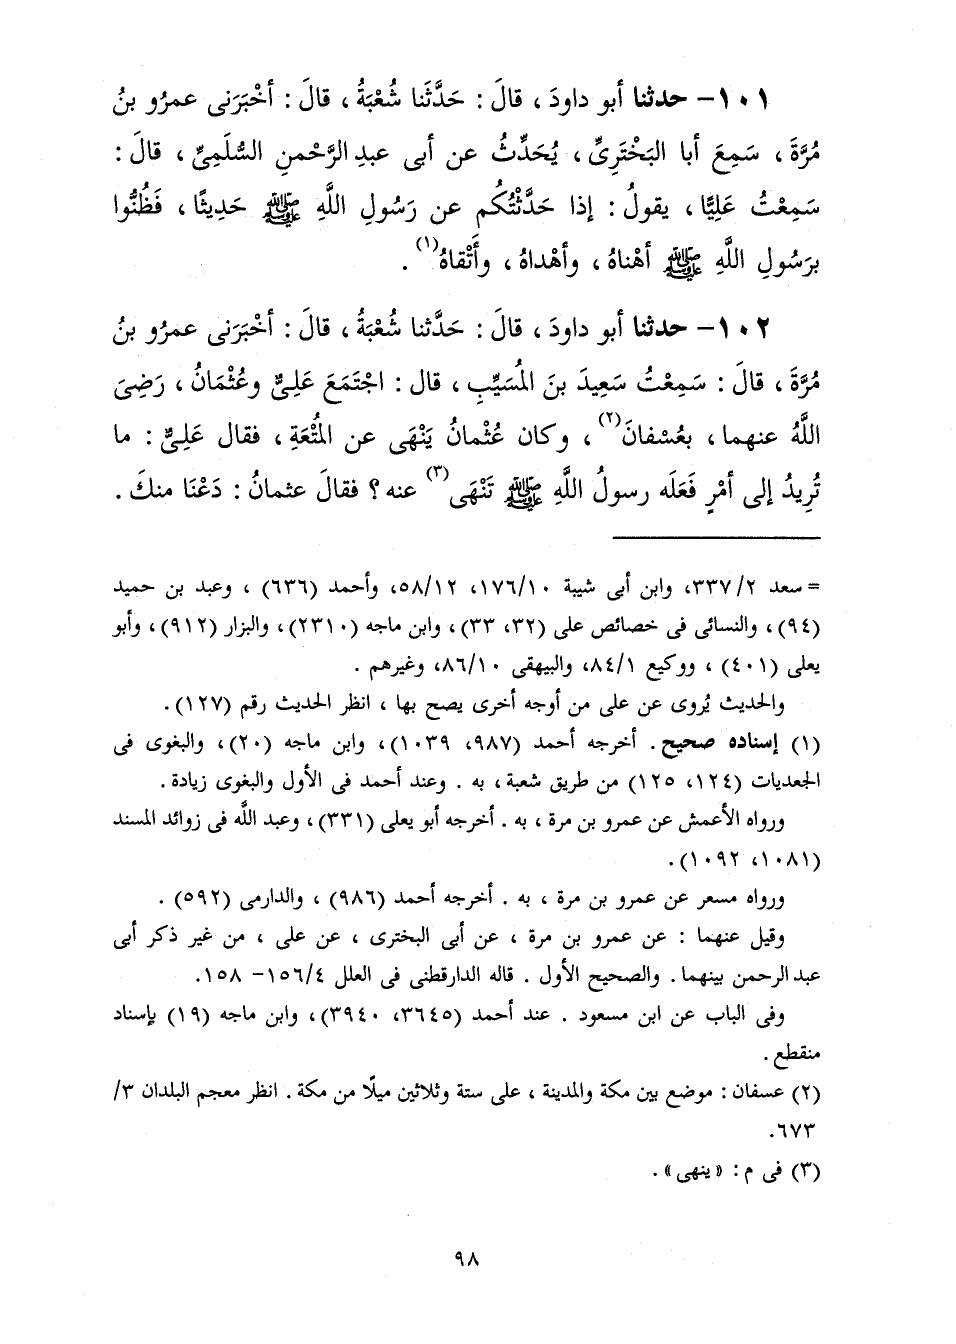 ١٠١- حدثنا أبو داودَ ، قالَ : حَدَّثَنا شُعْبَةُ ، قالَ : أخْبَرَنى عمرُو بنُ
مُرَّةَ ، سَمِعَ أبا البَخْتَرِىِّ ، يُحَدِّثُ عن أبى عبدِ الرَّحْمنِ السُّلَمِىِّ ، قالَ :
سَمِعْتُ عَلِيًّا ، يقولُ : إذا حَدَّثْتُكُم عن رَسُولِ اللَّهِ ﷺ حَدِيثًا ، فَظُنُّوا
برَسُولِ اللَّهِ ﷺ أهْناهُ ، وأهْداهُ ، وأَتْقاهُ(١) .
١٠٢- حدثنا أبو داودَ ، قالَ : حَدَّثَنا شُعْبَةُ ، قالَ : أخْبَرَنى عمرُو بنُ
مُرَّةَ ، قالَ : سَمِعْتُ سَعِيدَ بنَ المُسَيَّبِ ، قال : اجْتَمَعَ عَلِىٌّ وعُثْمَانُ ، رَضِىَ
اللَّهُ عنهما ، بعُسْفانَ(٢) ، وكان عُثْمانُ يَنْهَى عن المُتْعَةِ ، فقال عَلِىٌّ : ما
تُرِيدُ إلى أمْرٍ فَعَلَه رسولُ اللَّهِ ﷺ تَنْهَى(٣) عنه ؟ فقالَ عثمانُ : دَعْنَا منكَ .
= سعد ٢/ ٣٣٧، وابن أبى شيبة ١٠/ ١٧٦، ١٢/ ٥٨، وأحمد (٦٣٦) ، وعبد بن حميد
(٩٤) ، والنسائى فى خصائص على (٣٢، ٣٣)، وابن ماجه (٢٣١٠)، والبزار (٩١٢) ، وأبو
يعلى (٤٠١) ، ووكيع ١/ ٨٤، والبيهقى ١٠/ ٨٦، وغيرهم .
والحديث يُروى عن على من أوجه أخرى يصح بها ، انظر الحديث رقم (١٢٧).
(١) إسناده صحيح . أخرجه أحمد (٩٨٧، ١٠٣٩)، وابن ماجه (٢٠)، والبغوى فى
الجعديات (١٢٤، ١٢٥) من طريق شعبة ، به . وعند أحمد فى الأول والبغوى زيادة .
ورواه الأعمش عن عمرو بن مرة ، به . أخرجه أبو يعلى (٣٣١)، وعبد اللَّه فى زوائد المسند
(١٠٨١، ١٠٩٢).
ورواه مسعر عن عمرو بن مرة ، به . أخرجه أحمد (٩٨٦) ، والدارمى (٥٩٢) .
وقيل عنهما : عن عمرو بن مرة ، عن أبى البخترى ، عن على ، من غير ذكر أبى
عبد الرحمن بينهما . والصحيح الأول . قاله الدارقطنى فى العلل ٤/ ١٥٦- ١٥٨.
وفى الباب عن ابن مسعود . عند أحمد (٣٦٤٥، ٣٩٤٠)، وابن ماجه (١٩) بإسناد
منقطع .
(٢) عسفان : موضع بين مكة والمدينة ، على ستة وثلاثين ميلًا من مكة . انظر معجم البلدان ٣/
٦٧٣.
(٣) فى م : «ينهى» .
٩٨